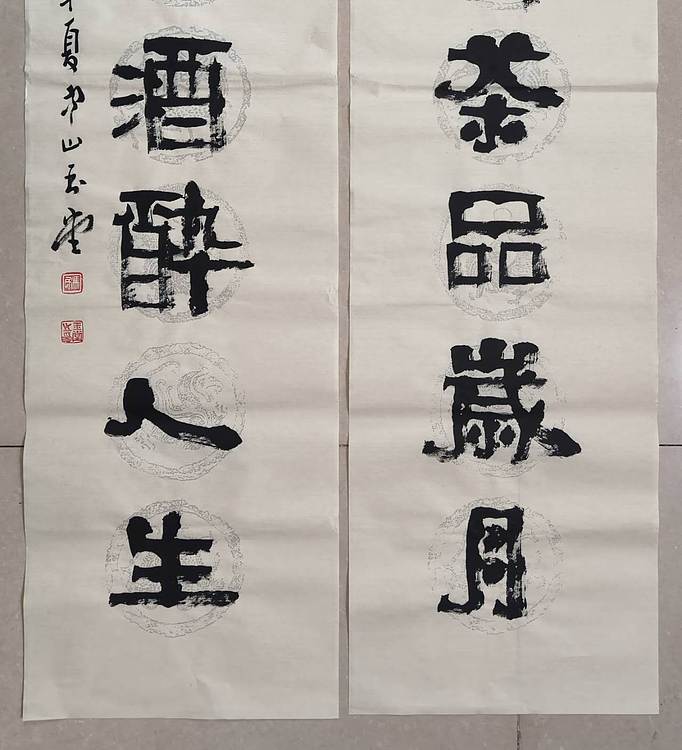 茶品歲月
酒醉人生
夏